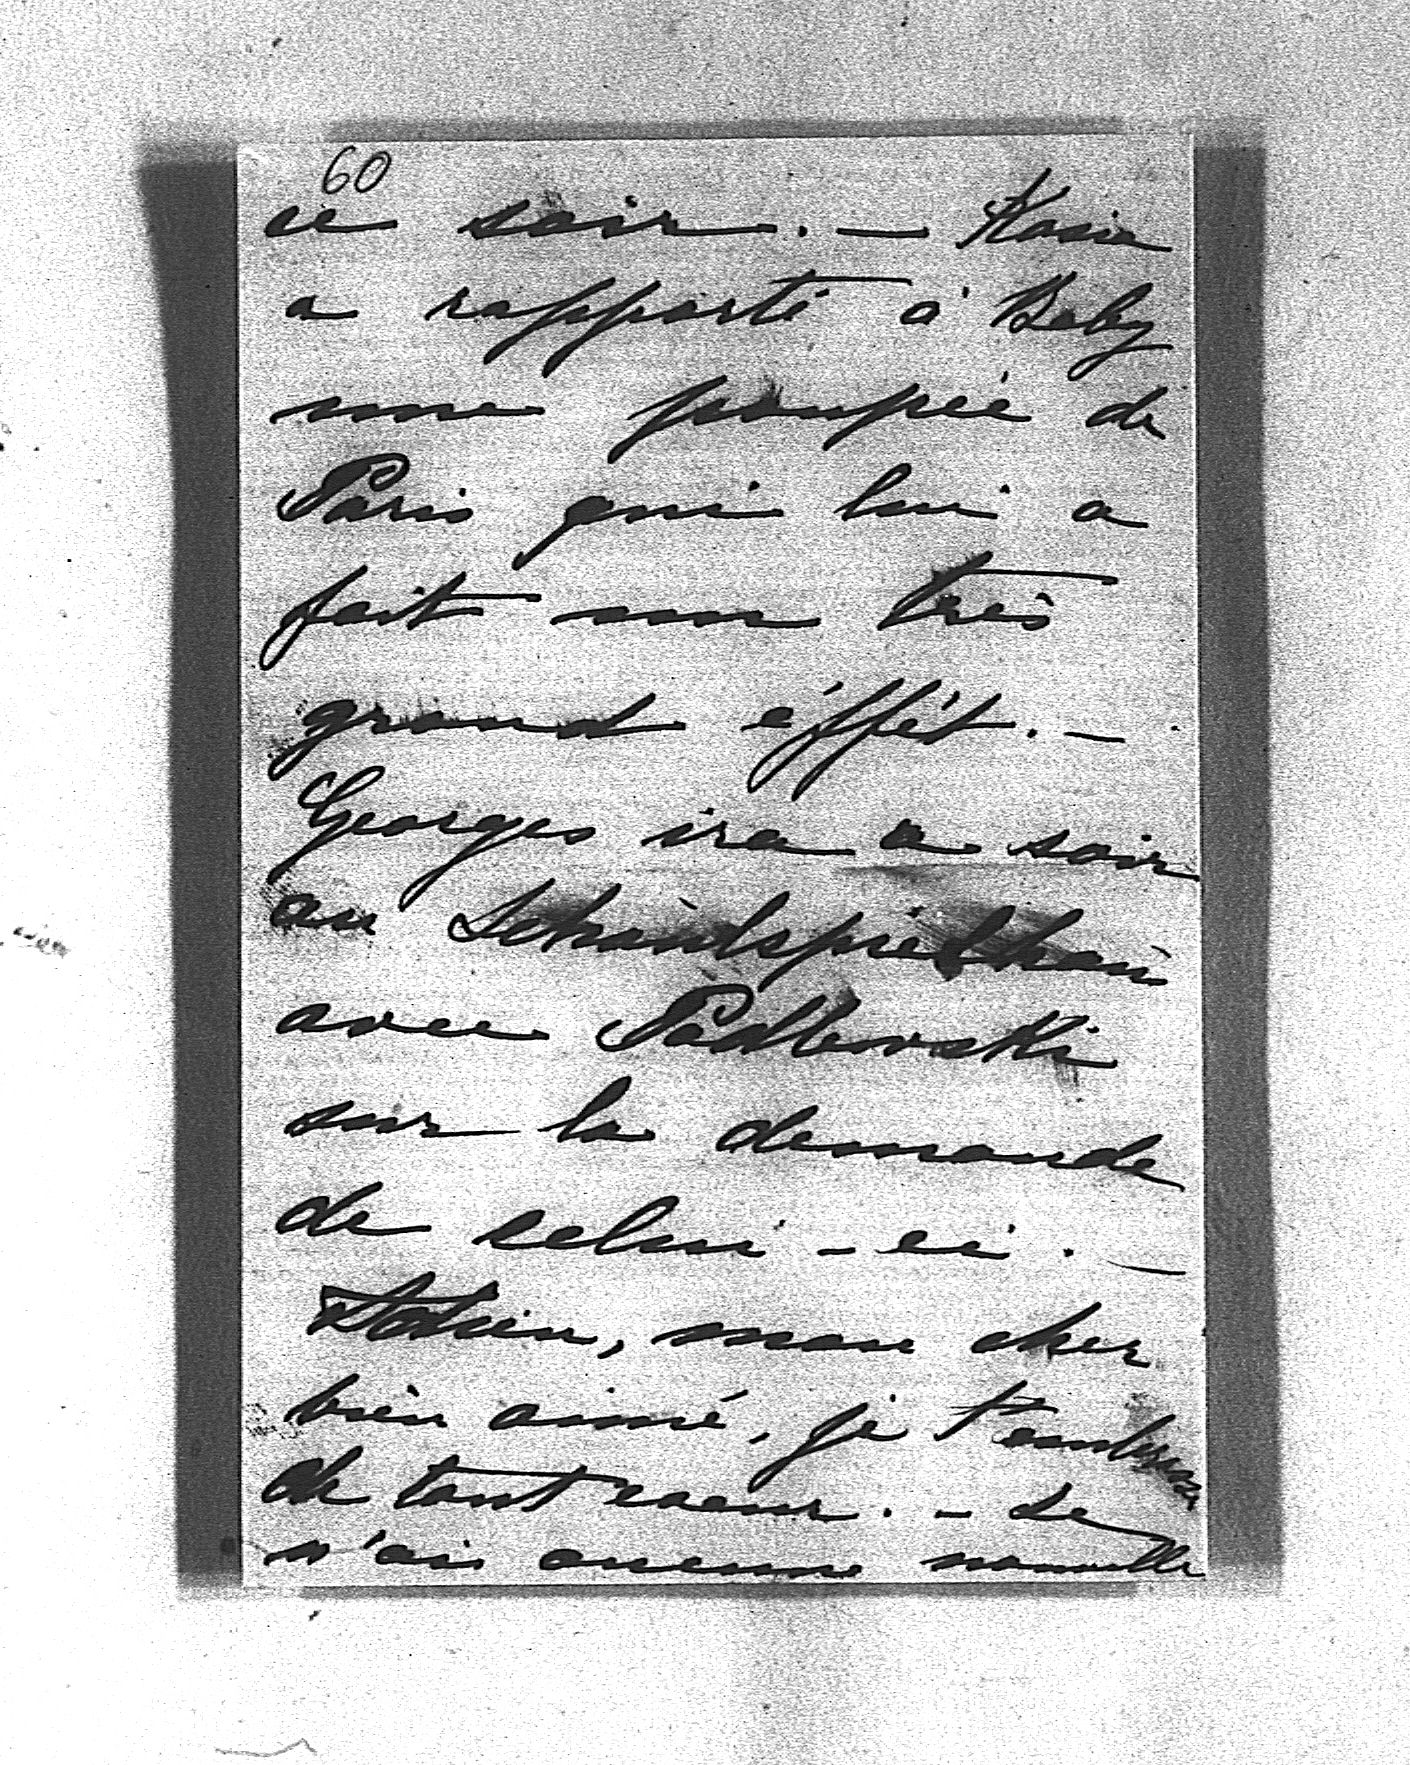 60
ce soir. — Kasia
a rapporté à Baby
une poupée de
Paris qui lui a
fait un très
grand éffét. —
Georges ira ce soir
au Schauspielhaus
avec Padlewski
sur la demande
de celui-ci. —
mon cher
bien aimé, je t'embrasse
de tout coeur. — Je
n'ai aucune nouvelle